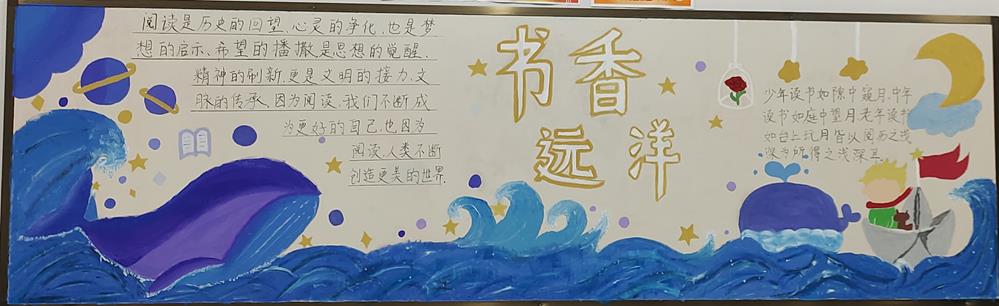 阅读是历史的回望、心灵的净化,也是梦
想的启示、希望的播撒,是思想的觉醒、
精神的刷新,更是文明的接力,文
脉的传承,因为阅读,我们不断成
为更好的自己,也因为
阅读,人类不断
创造更美的世界.
书香
远洋
少年读书如隙中窥月,中年
读书如庭中望月,老年读书
如台上玩月皆以阅历之浅
深为所得之浅深耳